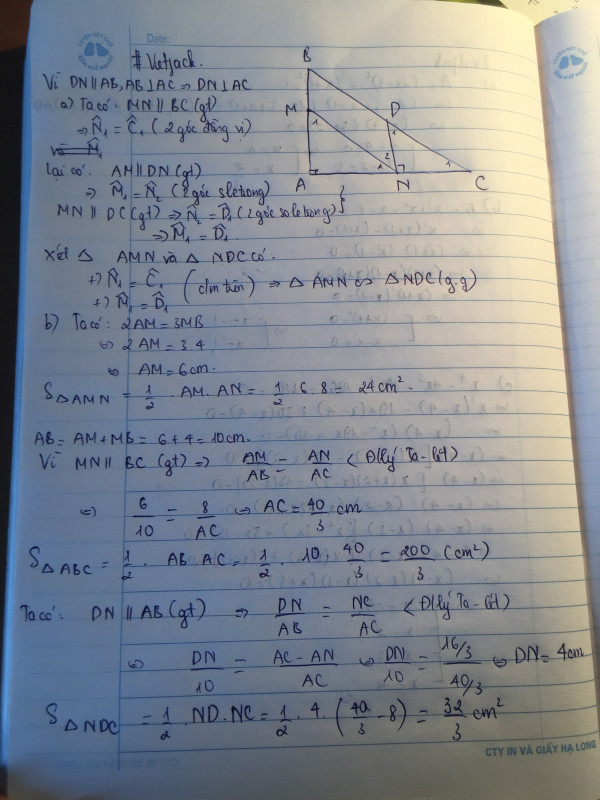 Date:
# Vietjack.
Vì DN // AB, AB ⊥ AC ⇒ DN ⊥ AC
a) Ta có: MN // BC (gt)
⇒ N̂₁ = Ĉ₁ (2 góc đồng vị)
Lại có: AM // DN (gt)
⇒ M̂₁ = N̂₂ (2 góc sletrong)
MN // DC (gt) ⇒ N̂₂ = D̂₁ (2 góc so letrong)
⇒ M̂₁ = D̂₁.
B
M
D
1
1
2
1
1
A
N
C
Xét △ AMN và △ NDC có:
+) N̂₁ = Ĉ₁
+) M̂₁ = D̂₁
(cm trên) ⇒ △ AMN ∽ △ NDC (g.g)
b) Ta có: 2AM = 3MB
⇔ 2AM = 3.4
⇔ AM = 6cm.
S△AMN = 1/2 . AM. AN = 1/2 . 6. 8 = 24 cm².
AB = AM + MB = 6 + 4 = 10cm.
Vì MN // BC (gt) ⇒ AM/AB = AN/AC < Đlý Ta-lét)
⇔ 6/10 = 8/AC ⇔ AC = 40/3 cm
S△ABC = 1/2 . AB. AC = 1/2 . 10 . 40/3 = 200/3 (cm²)
Ta có: DN // AB (gt) ⇒ DN/AB = NC/AC < Đlý Ta-lét)
⇔ DN/10 = AC - AN/AC ⇔ DN/10 = 16/3/40/3 ⇔ DN = 4cm
S△NDC = 1/2 . ND. NC = 1/2 . 4 . (40/3 - 8) = 32/3 cm²
CTY IN VÀ GIẤY HẠ LONG